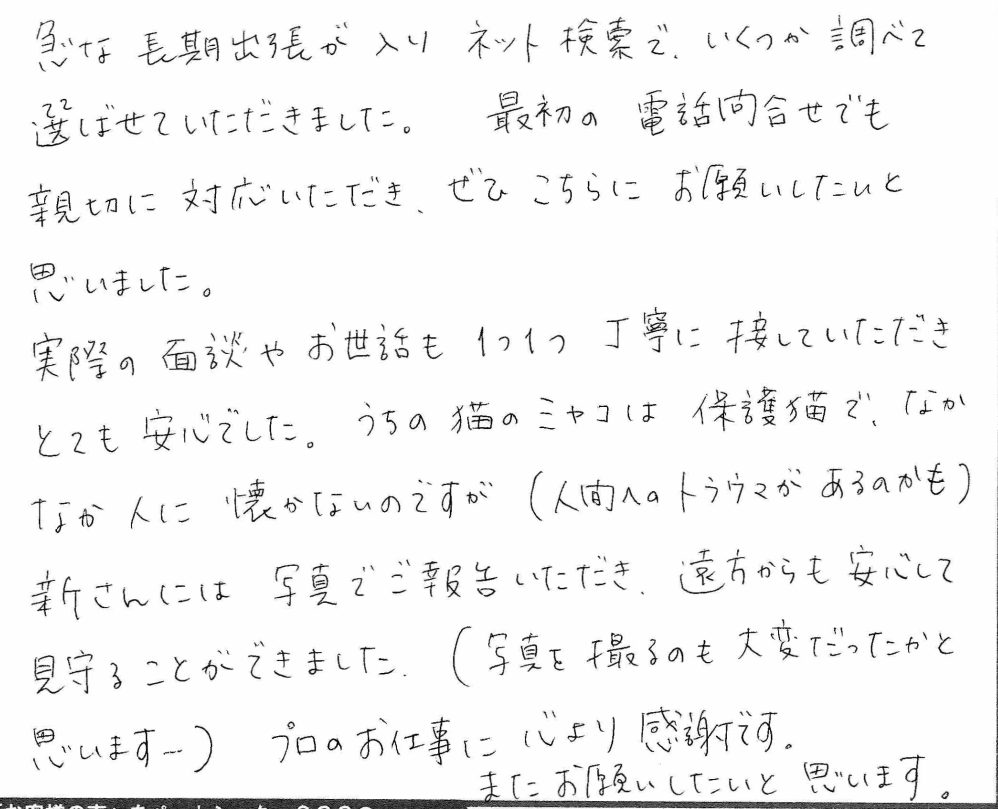 急な長期出張が入りネット検索で、いくつか調べて
選ばせていただきました。 最初の電話問合せでも
親切に対応いただき、ぜひこちらにお願いしたいと
思いました。
実際の面談やお世話も1つ1つ丁寧に接していただき
とても安心でした。うちの猫のミヤコは保護猫で、なか
なか人に懐かないのですが(人間へのトラウマがあるのかも)
新さんには写真でご報告いただき、遠方からも安心して
見守ることができました.(写真を撮るのも大変だったかと
思います〜) プロのお仕事に心より感謝です。
またお願いしたいと思います。